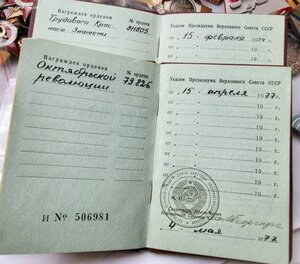 Награжден орденом
№ ордена
Трудового Крас-
ного Знамени
Указом Президиума Верховного Совета СССР
от „ 15 „ февраля 1974 г.
от „ „ 19 г.
от „ „ 19 г.
Награжден орденом
№ ордена
Октябрьской
революции
79826
И № 506981
Указом Президиума Верховного Совета СССР
от „ 15 „ апреля 1977 г.
от „ „ 19 г.
от „ „ 19 г.
от „ „ 19 г.
от „ „ 19 г.
от „ „ 19 г.
от „ „ 19 г.
Секретарь Президиума
Верховного Совета СССР
4 мая 1977 г.